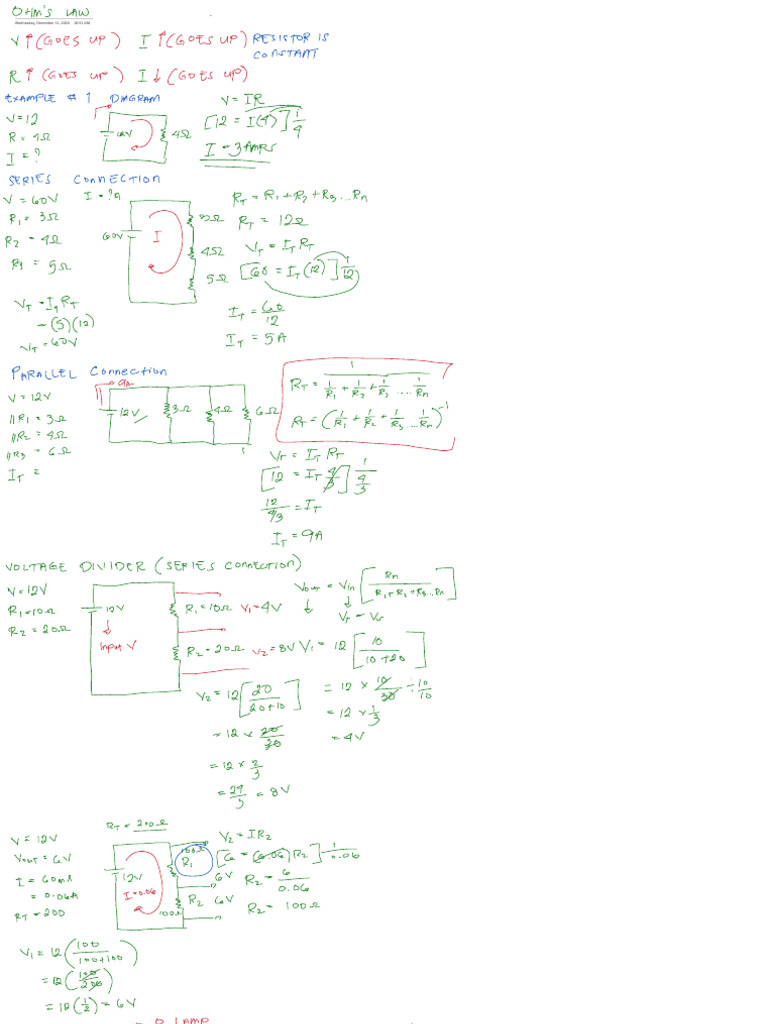 OHM'S LAW
Wednesday, December 15, 2020 10:51 AM
V ↑ (GOES UP) I ↑ (GOES UP) RESISTOR IS
CONSTANT
R ↑ (GOES UP) I ↓ (GOES UP)
EXAMPLE # 1 DIAGRAM
V = IR
V = 12
R = 4Ω
I = ?
12V
4Ω
[12 = I(4)] 1/4
I = 3 AMPS
SERIES CONNECTION
V = 60V
R1 = 3Ω
R2 = 4Ω
R3 = 5Ω
I = ?A
60V
I
3Ω
4Ω
5Ω
RT = R1 + R2 + R3 ... Rn
RT = 12Ω
VT = IT RT
[60 = IT (12)] 1/12
IT = 60/12
IT = 5A
VT = IT RT
= (5)(12)
VT = 60V
PARALLEL CONNECTION
V = 12V
// R1 = 3Ω
// R2 = 4Ω
// R3 = 6Ω
IT =
9A
12V
3Ω
4Ω
6Ω
RT = 1 / (1/R1 + 1/R2 + 1/R3 .... 1/Rn)
RT = (1/R1 + 1/R2 + 1/R3 ... 1/Rn)^-1
VT = IT RT
[12 = IT 4/3] 1/(4/3)
12/(4/3) = IT
IT = 9A
VOLTAGE DIVIDER (SERIES CONNECTION)
V = 12V
R1 = 10Ω
R2 = 20Ω
12V
Input V
R1 = 10Ω V1 = 4V
R2 = 20Ω V2 = 8V
Vout = Vin [Rn / (R1 + R2 + R3 ... Rn)]
V1 = 12 [10 / (10 + 20)]
= 12 × 10/30 ÷ 10/10
= 12 × 1/3
= 4V
V2 = 12 [20 / (20 + 10)]
= 12 × 20/30
= 12 × 2/3
= 24/3 = 8V
RT = 200Ω
V = 12V
Vout = 6V
I = 60mA
= 0.06A
RT = 200
12V
I = 0.06
100Ω
R1
6V
R2 6V
100Ω
V2 = IR2
[6 = (0.06) R2] 1/0.06
R2 = 6/0.06
R2 = 100Ω
V1 = 12 (100 / (100 + 100))
= 12 (100/200)
= 12 (1/2) = 6V